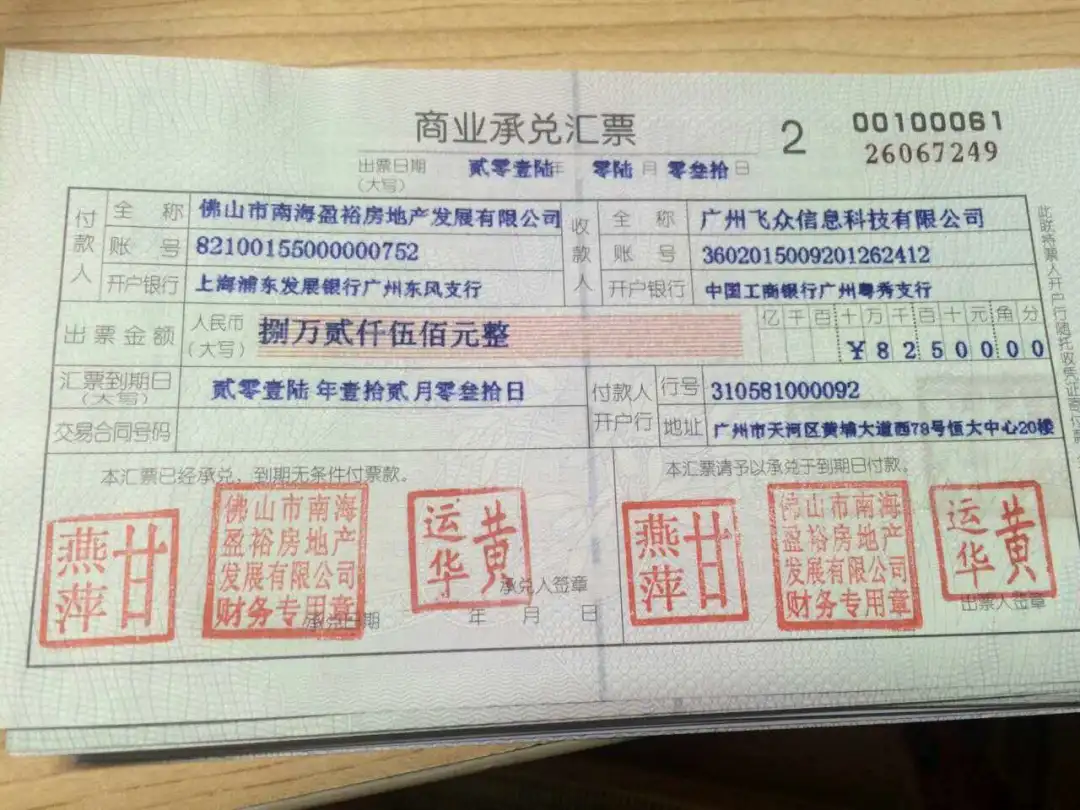 商业承兑汇票
2
00100061
26067249
出票日期
(大写)
贰零壹陆年 零陆月 零叁拾日
付款人
全称 佛山市南海盈裕房地产发展有限公司
账号 82100155000000752
开户银行 上海浦东发展银行广州东风支行
收款人
全称 广州飞众信息科技有限公司
账号 3602015009201262412
开户银行 中国工商银行广州粤秀支行
出票金额
人民币
(大写)
捌万贰仟伍佰元整
亿千百十万千百十元角分
¥8250000
汇票到期日
(大写)
贰零壹陆年壹拾贰月零叁拾日
付款人
开户行
行号 310581000092
地址 广州市天河区黄埔大道西78号恒大中心20楼
交易合同号码
本汇票已经承兑，到期无条件付票款。
燕萍甘
佛山市南海
盈裕房地产
发展有限公司
财务专用章
运华黄
承兑人签章
承兑日期 年 月 日
本汇票请予以承兑于到期日付款。
燕萍甘
佛山市南海
盈裕房地产
发展有限公司
财务专用章
运华黄
出票人签章